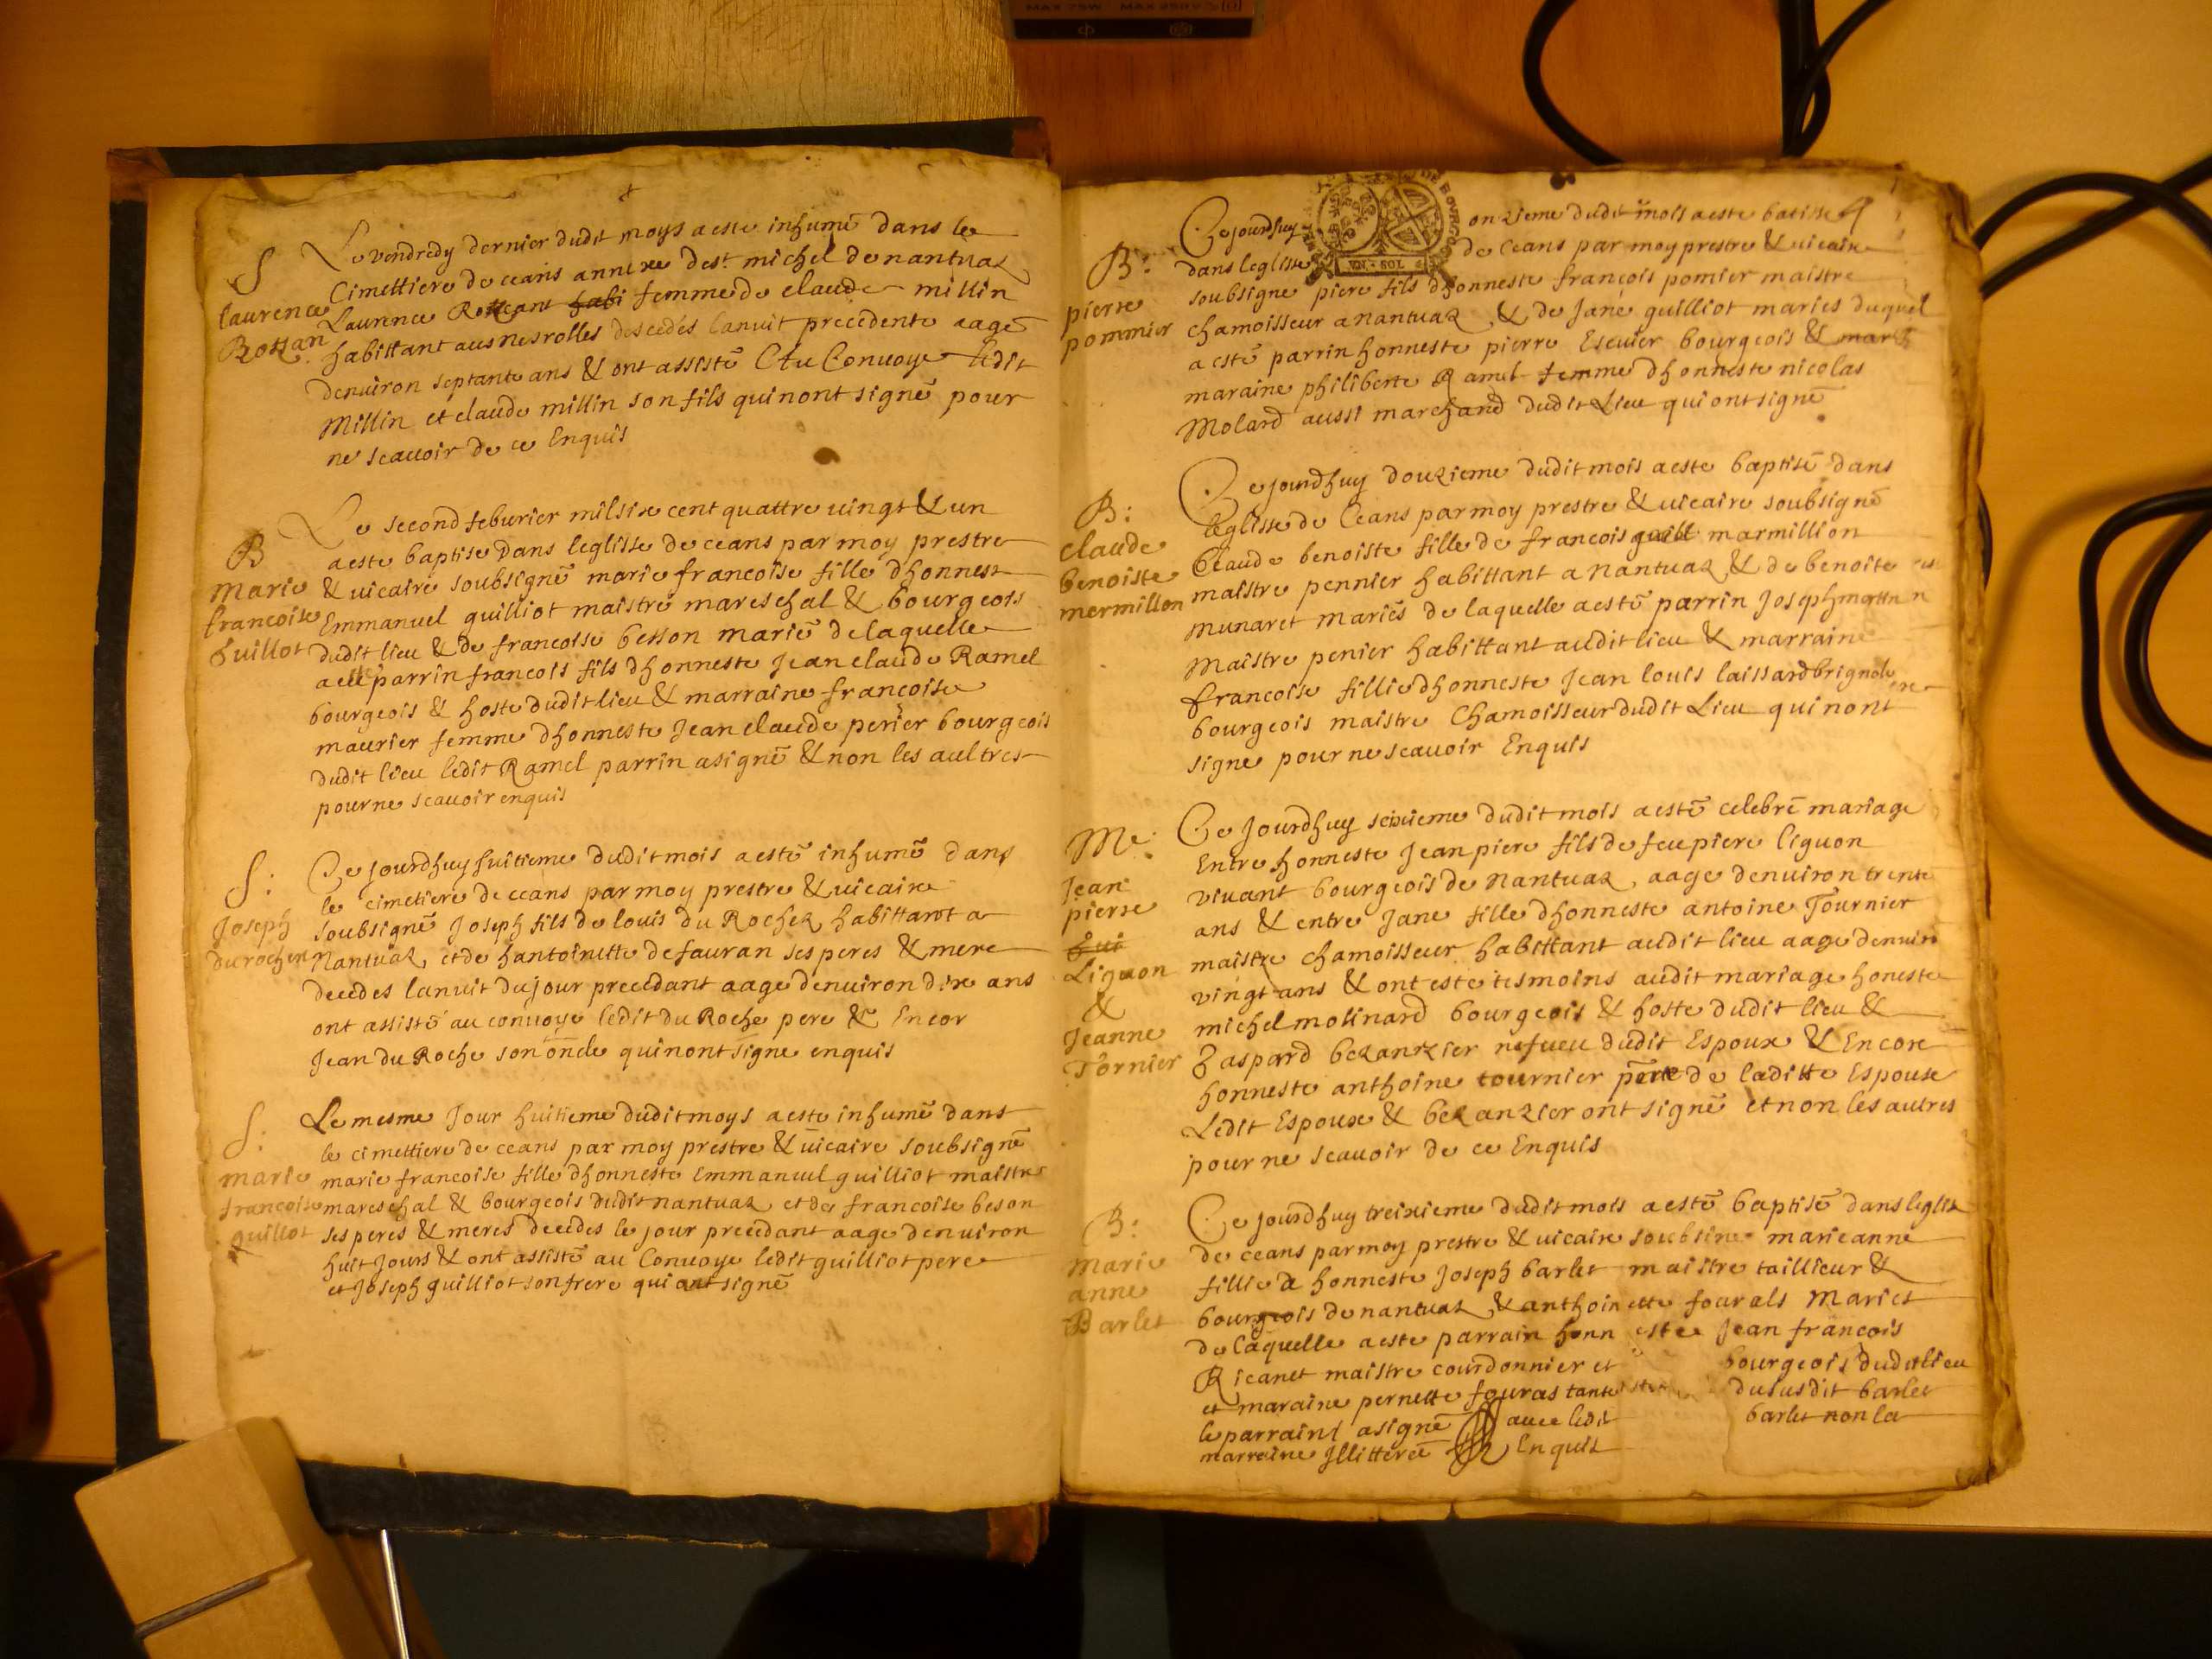 S
laurence
Rottan
Le vendredy dernier dudit moys a este inhumé dans le
Cimettiere de ceans annexe de st michel de nantuaz
Laurence Rottant habi femme de claude millin
habittant aus nesrolles descedes lanuit precedente aage
denuiron septante ans & ont assisté Au Conuoye ledit
Millin et claude millin son fils qui nont signé pour
ne scauoir de ce Enquis
B
Marie
francoise
Guillot
Le second feburier mil sixe cent quattre uingt & un
a este baptise dans leglisse de ceans par moy prestre
& uicaire soubsigné marie francoise fille dhonnest
Emmanuel guilliot maistre mareschal & bourgeois
dudit lieu & de francoise besson marié de laquelle
a esté parrin francois fils dhonneste Jean claude Ramel
bourgeois & hoste dudit lieu & marraine francoise
maurier femme dhonneste Jean claude perier bourgeois
dudit lieu ledit Ramel parrin a signé & non les aultres
pour ne scauoir enquis
S:
Joseph
du rocher
Ce jourdhuy huitieme dudit mois a esté inhumé dans
le cimetiere de ceans par moy prestre & uicaire
soubsigné Joseph fils de louis du Rocher habittant a
Nantuaz et de hantoinette defauran ses peres & mere
decedes lanuit du jour precedant aage denuiron dixe ans
ont assisté au conuoye ledit du Roche pere & Encor
Jean du Roche son oncle qui nont signe enquis
S:
marie
francoise
guillot
Le mesme Jour huitieme dudit moys a este inhumé dans
le cimettiere de ceans par moy prestre & uicaire soubsigné
marie francoise fille dhonneste Emmanuel guilliot maistre
mareschal & bourgeois dudit nantuaz et de francoise beson
ses peres & meres decedes le jour precedant aage denuiron
huit Jours & ont assisté au Conuoye ledit guilliot pere
et Joseph guilliot son frere qui ont signé
B:
pierre
pommier
Ce jourdhuy onzieme dudit mois a este batisse
dans leglisse de Ceans par moy prestre & uicaire
soubsigne piere fils dhonneste francois pomier maistre
chamoisseur a nantuaz & de Jane guilliot maries duquel
a esté parrin honneste pierre Escuier bourgeois & mar
maraine philiberte Ramel femme dhonneste nicolas
Molard aussi marchand dudit Lieu qui ont signé
VN SOL
B:
claude
benoiste
mermillon
Ce jourdhuy douzieme dudit mois a este baptisé dans
leglisse de Ceans par moy prestre & uicaire soubsigné
Claude benoiste fille de francois marmillion
maistre pennier habittant a nantuaz & de benoite
munaret mariés de laquelle a esté parrin Joseph
Maistre penier habittant audit lieu & marraine
francoise fillie dhonneste Jean louis laissard brignole
bourgeois maistre Chamoisseur dudit Lieu qui nont
signe pour ne scauoir Enquis
Me:
Jean
pierre
Liguon
&
Jeanne
Tornier
Ce Jourdhuy seixieme dudit mois a esté celebré mariage
Entre honneste Jean piere fils de feu piere liguon
vivant bourgeois de nantuaz, aage denuiron trente
ans & entre Jane fille dhonneste antoine Tournier
maistre chamoisseur habittant audit lieu aage denuiron
vingt ans & ont este tesmoins audit mariage honeste
michel molinard bourgeois & hoste dudit lieu &
Gaspard bezanzier nefueu dudit Espoux & Encore
honneste anthoine tournier pere de laditte Espouse
Ledit Espoux & bezanzier ont signé et non les autres
pour ne scauoir de ce Enquis
B:
Marie
anne
Barlet
Ce jourdhuy treixieme dudit mois a esté baptisé dans leglise
de ceans par moy prestre & uicaire soubsine marie anne
fillie de honneste Joseph barlet maistre taillieur &
bourgeois de nantuaz & anthoinette fourals Maries
de Laquelle a este parrain honneste Jean francois
Ricanet maistre courdonnier et bourgeois dudit lieu
et maraine pernette fouras tante du susdit barlet
le parrain a signé auec ledit barlet non la
marraine Jllitterée Enquis